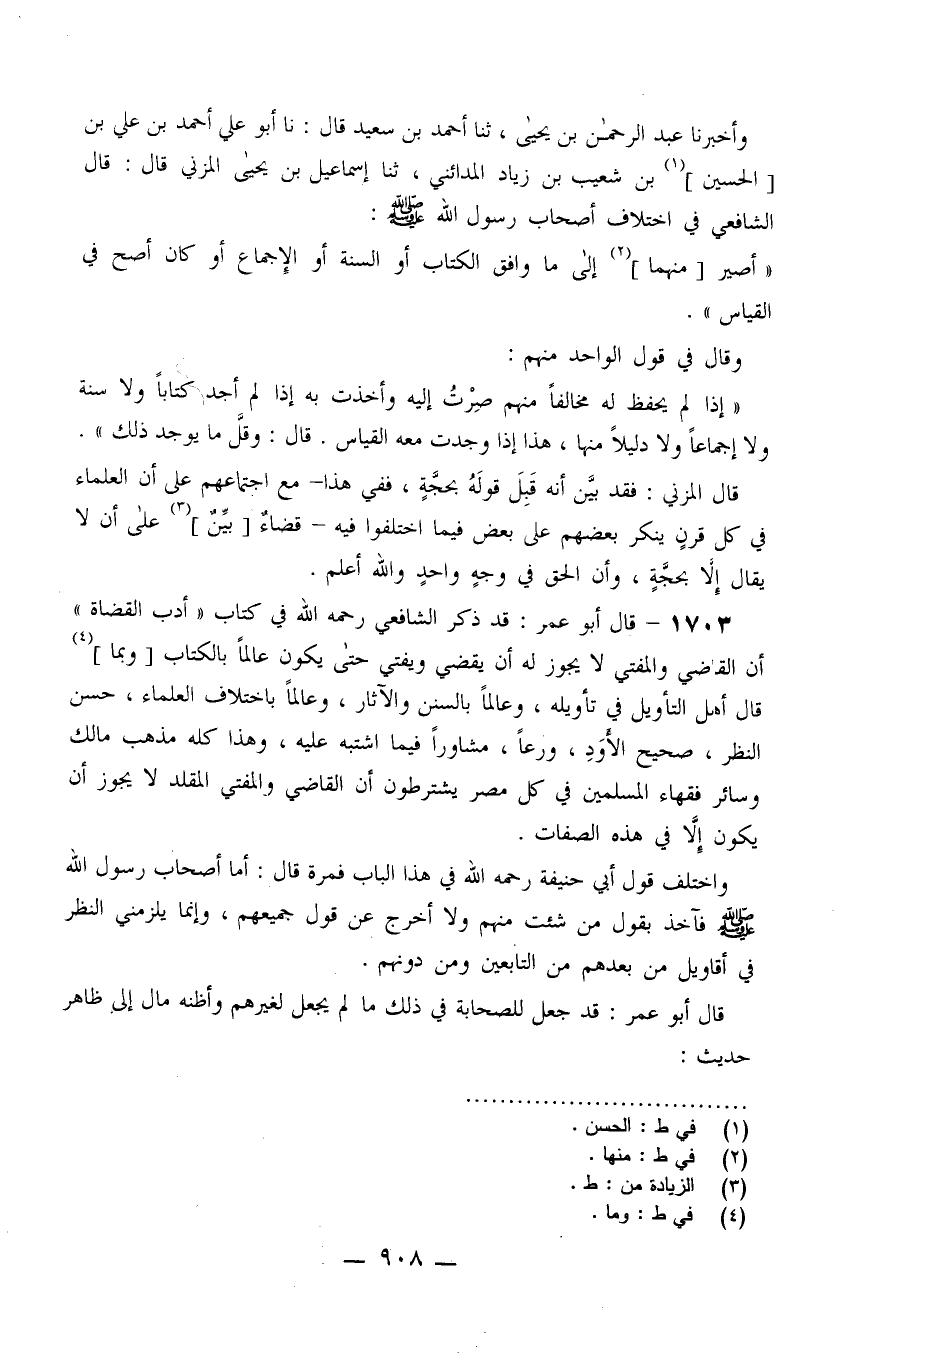 وأخبرنا عبد الرحمٰن بن يحيىٰ ، ثنا أحمد بن سعيد قال : نا أبو علي أحمد بن علي بن
[ الحسين ](١) بن شعيب بن زياد المدائني ، ثنا إسماعيل بن يحيىٰ المزني قال : قال
الشافعي في اختلاف أصحاب رسول الله ﷺ :
« أصير [ منهما ](٢) إلىٰ ما وافق الكتاب أو السنة أو الإجماع أو كان أصح في
القياس » .
وقال في قول الواحد منهم :
« إذا لم يحفظ له مخالفاً منهم صِرْتُ إليه وأخذت به إذا لم أجد كتاباً ولا سنة
ولا إجماعاً ولا دليلاً منها ، هذا إذا وجدت معه القياس . قال : وقلَّ ما يوجد ذلك » .
قال المزني : فقد بيَّن أنه قَبِلَ قولَهُ بحجَّةٍ ، ففي هذا– مع اجتماعهم على أن العلماء
في كل قرنٍ ينكر بعضهم على بعض فيما اختلفوا فيه – قضاءٌ [ بيِّنٌ ](٣) علىٰ أن لا
يقال إلَّا بحجَّةٍ ، وأن الحق في وجهٍ واحدٍ والله أعلم .
١٧٠٣ – قال أبو عمر : قد ذكر الشافعي رحمه الله في كتاب « أدب القضاة »
أن القاضي والمفتي لا يجوز له أن يقضي ويفتي حتىٰ يكون عالماً بالكتاب [ وبما ](٤)
قال أهل التأويل في تأويله ، وعالماً بالسنن والآثار ، وعالماً باختلاف العلماء ، حسن
النظر ، صحيح الأَوَدِ ، ورعاً ، مشاوراً فيما اشتبه عليه ، وهذا كله مذهب مالك
وسائر فقهاء المسلمين في كل مصر يشترطون أن القاضي والمفتي المقلد لا يجوز أن
يكون إلَّا في هذه الصفات .
واختلف قول أبي حنيفة رحمه الله في هذا الباب فمرة قال : أما أصحاب رسول الله
ﷺ فآخذ بقول من شئت منهم ولا أخرج عن قول جميعهم ، وإنما يلزمني النظر
في أقاويل من بعدهم من التابعين ومن دونهم .
قال أبو عمر : قد جعل للصحابة في ذلك ما لم يجعل لغيرهم وأظنه مال إلى ظاهر
حديث :
(١) في ط : الحسن .
(٢) في ط : منها .
(٣) الزيادة من : ط .
(٤) في ط : وما .
— ٩٠٨ —